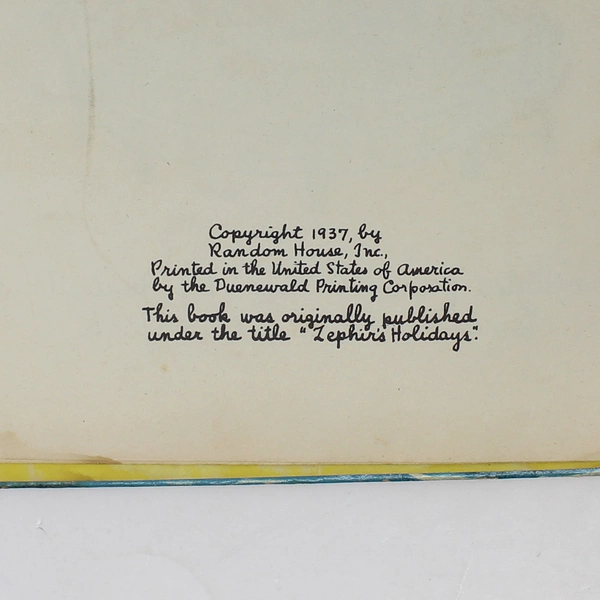 Copyright 1937, by
Random House, Inc.,
Printed in the United States of America
by the Duenewald Printing Corporation.
This book was originally published
under the title "Zephir's Holidays".